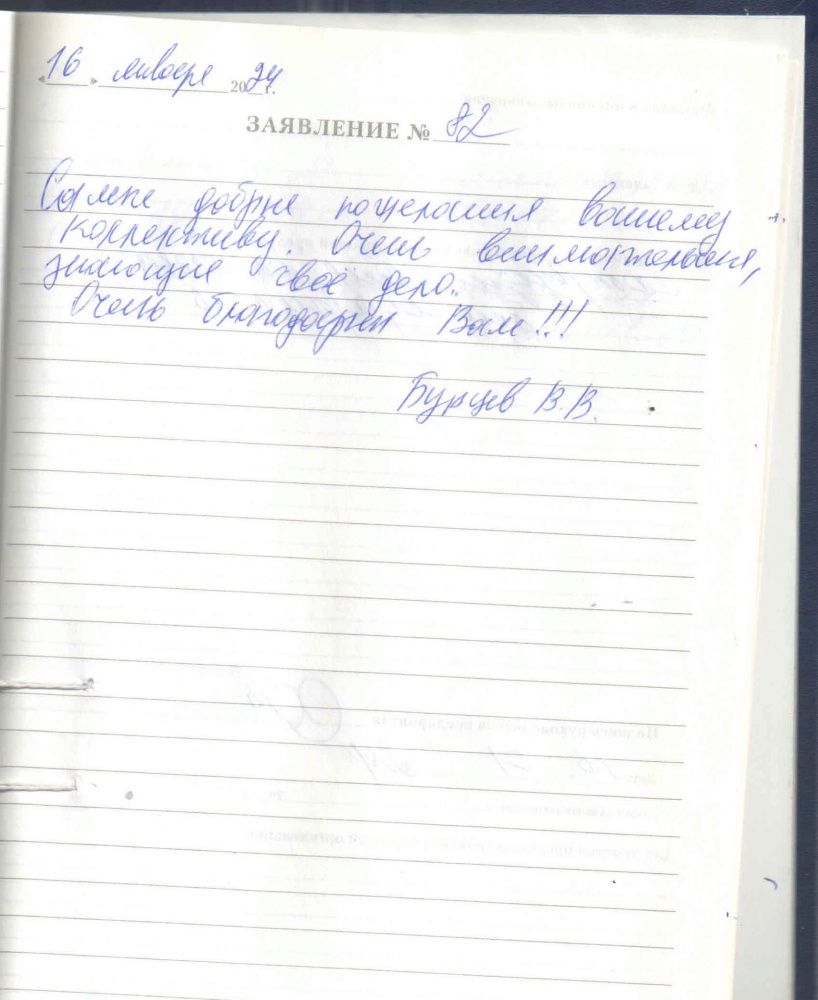 «16» января 2024 г.
ЗАЯВЛЕНИЕ № 82
Самые добрые пожелания вашему
коллективу. Очень внимательные,
знающие своё дело.
Очень благодарен Вам!!!
Бурцев В.В.